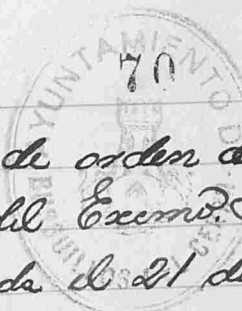 70
AYUNTAMIENTO D
de orden d
del Excmo.
da el 21 de